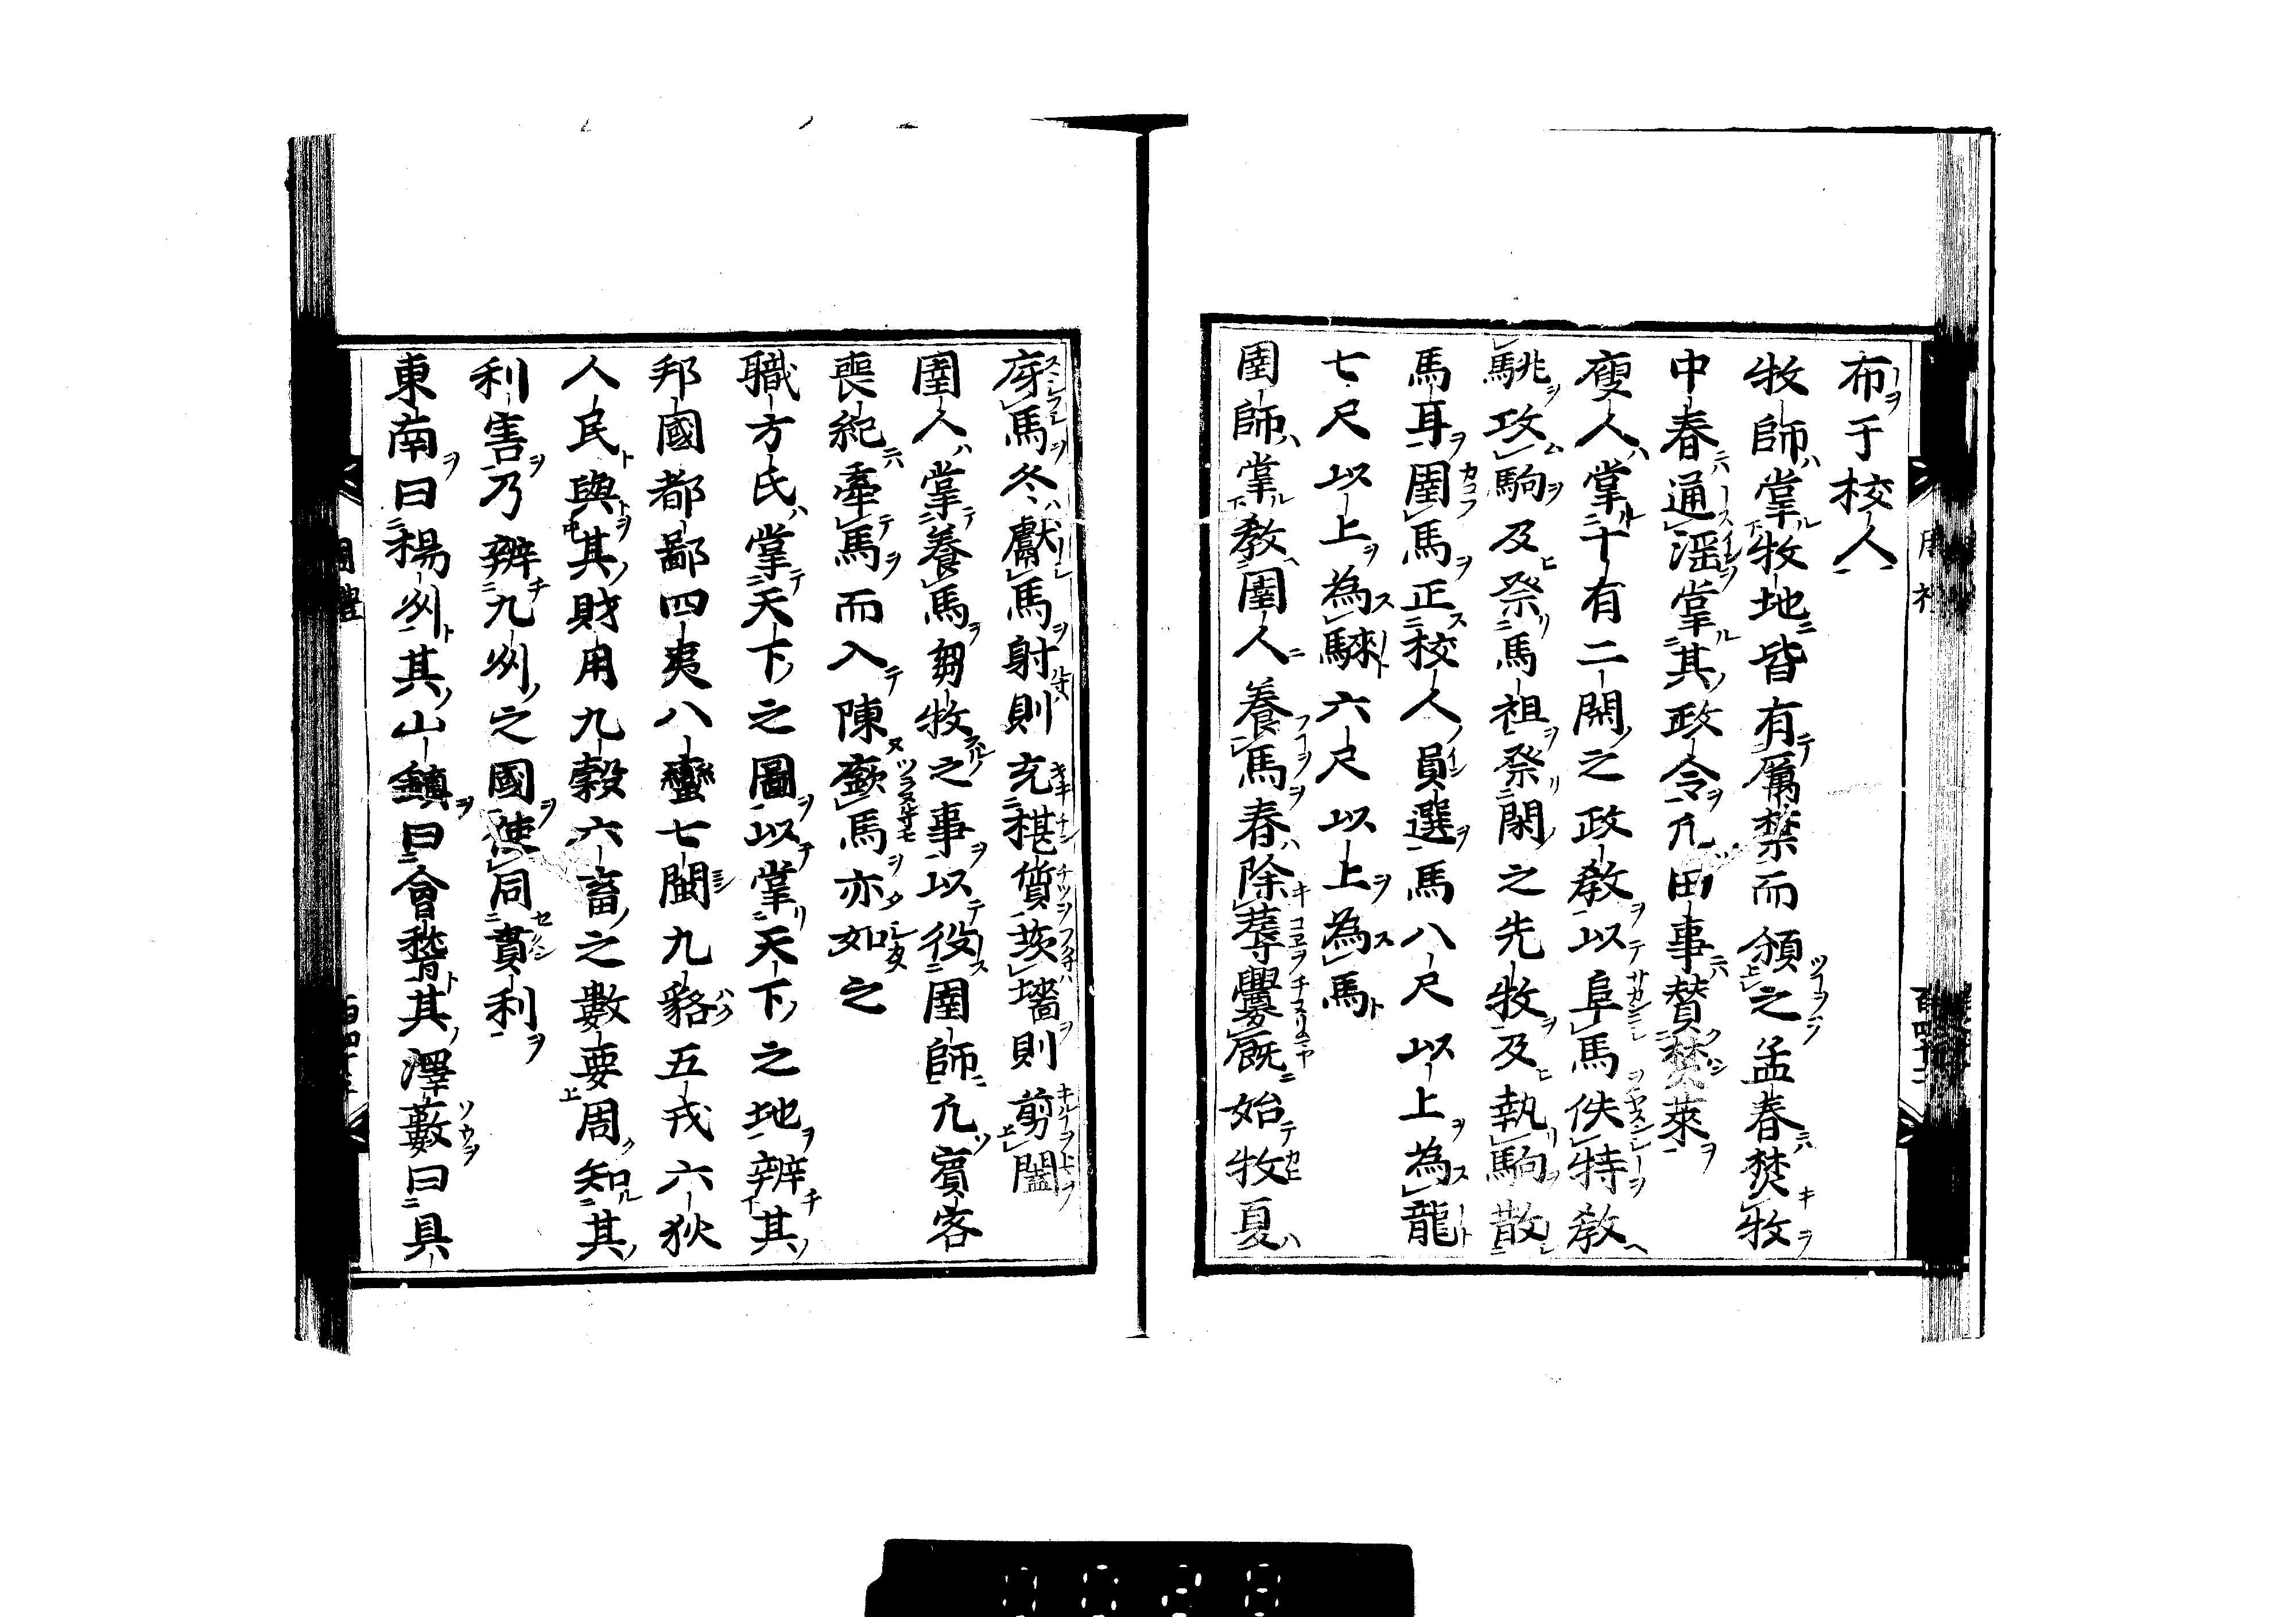 布于校人
牧師掌牧地皆有厲禁而頒之孟春焚牧
中春通淫掌其政令凡田事賛焚萊
廋人掌十有二閑之政教以阜馬佚特教
駣攻駒及祭馬祖祭閑之先牧及執駒散
馬耳圉馬正校人員選馬八尺以上為龍
七尺以上為騋六尺以上為馬
圉師掌教圉人養馬春除蓐釁廄始牧夏
庌馬冬獻馬射則充椹質茨墻則剪闔
圉人掌養馬芻牧之事以役圉師凡賓客
喪紀牽馬而入陳廞馬亦如之
職方氏掌天下之圖以掌天下之地辨其
邦國都鄙四夷八蠻七閩九貉五戎六狄
人民與其財用九穀六畜之數要周知其
利害乃辨九州之國使同貫利
東南曰楊州其山鎮曰會稽其澤藪曰具